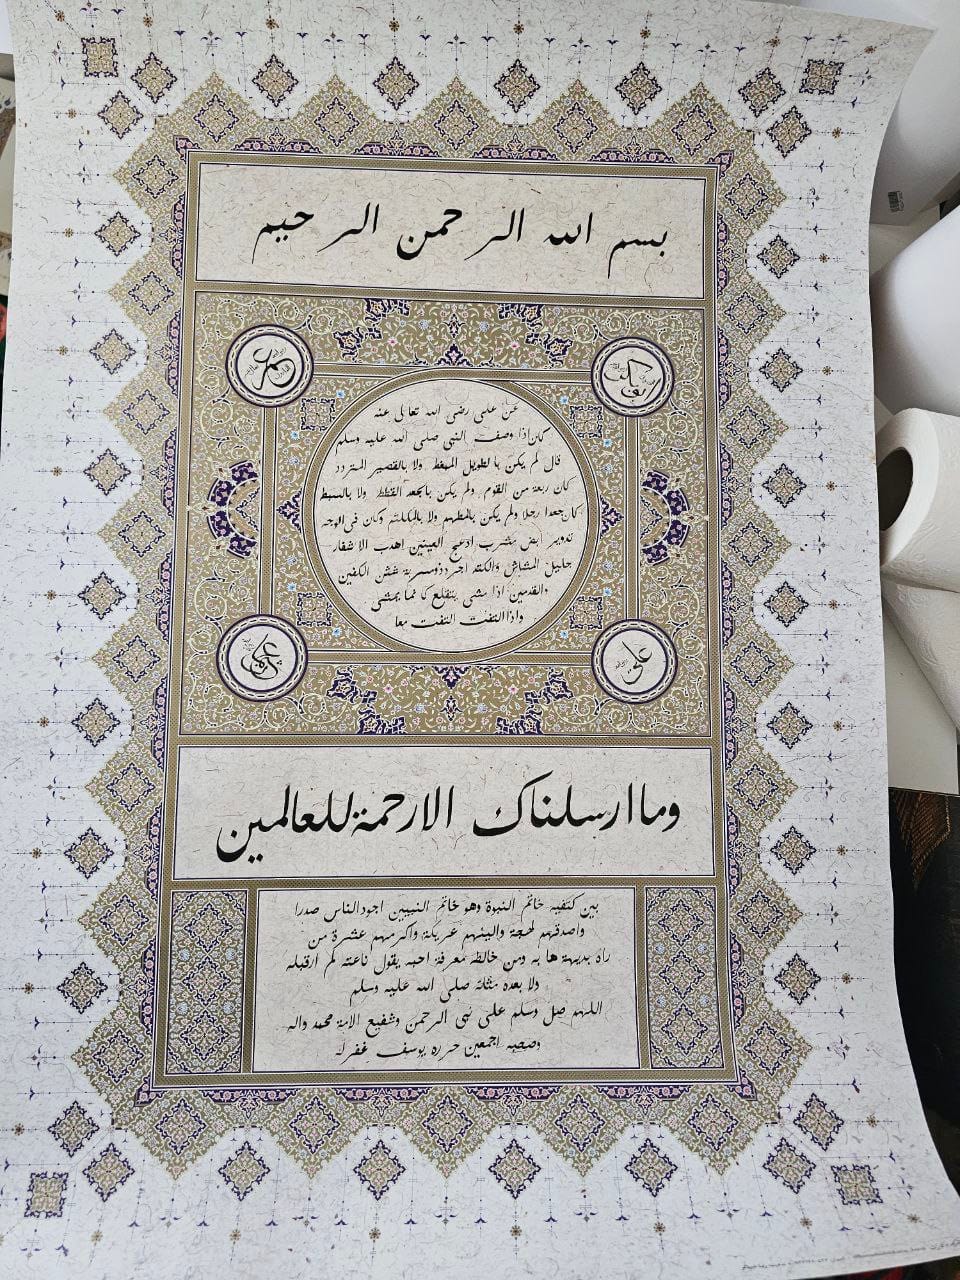 بسم الله الرحمن الرحيم
ابوبكر
عمر
عن علي رضي الله تعالى عنه
كان اذا وصف النبي صلى الله عليه وسلم
قال لم يكن بالطويل الممغط ولا بالقصير المتردد
كان ربعة من القوم ولم يكن بالجعد القطط ولا بالسبط
كان جعدا رجلا ولم يكن بالمطهم ولا بالمكلثم وكان في الوجه
تدوير ابيض مشرب ادعج العينين اهدب الاشفار
جليل المشاش والكتد اجرد ذو مسربة شثن الكفين
والقدمين اذا مشى يتقلع كانما يمشي
واذا التفت التفت معا
علي
عثمان
وما ارسلناك الا رحمة للعالمين
بين كتفيه خاتم النبوة وهو خاتم النبيين اجود الناس صدرا
واصدقهم لهجة والينهم عريكة واكرمهم عشرة من
راه بديهة هابه ومن خالطه معرفة احبه يقول ناعته لم ار قبله
ولا بعده مثله صلى الله عليه وسلم
اللهم صل وسلم على نبي الرحمن وشفيع الامة محمد واله
وصحبه اجمعين حرره يوسف غفر له